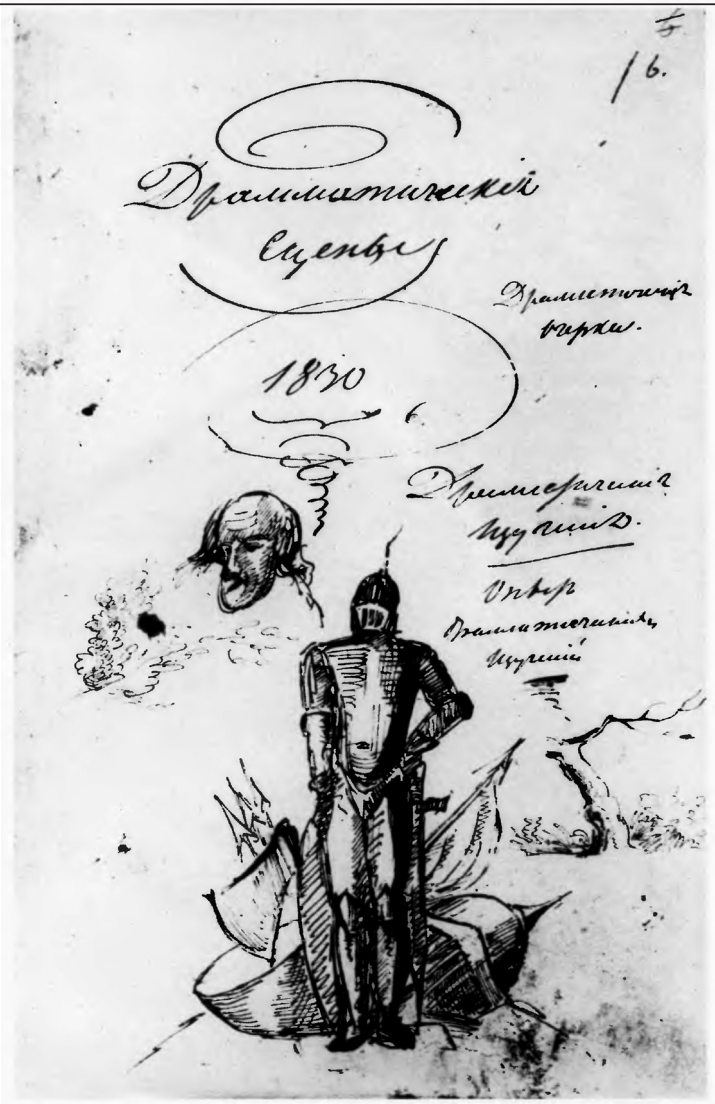 16.
Драмматическія
Сцены
Драматическіе
очерки.
1830
Драматическія
Изученія.
Опытъ
драмматическихъ
Изученій